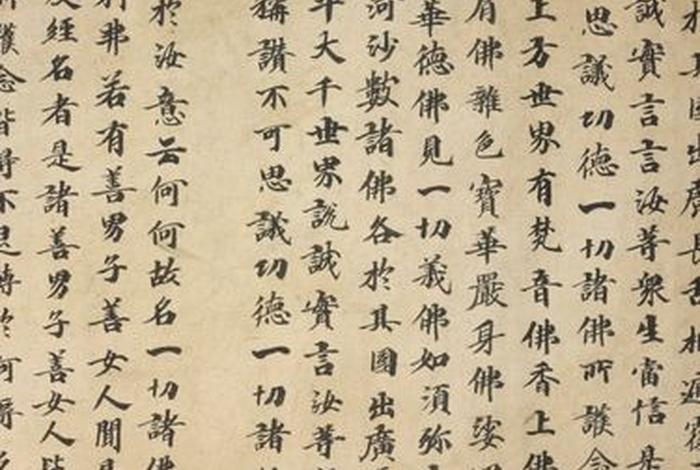 其國出廣長舌相遍覆
誠實言言汝等眾生當信是
思議功德一切諸佛所護念
上方世界有梵音佛香上佛
肩佛雜色寶華嚴身佛娑
華德佛見一切義佛如須弥
河沙數諸佛各於其國出廣
千大千世界說誠實言汝等
稱讚不可思議功德一切諸
於汝意云何何故名一切諸佛
利弗若有善男子善女人聞是
及經名者是諸善男子善女人皆
護念皆得不退轉於阿耨